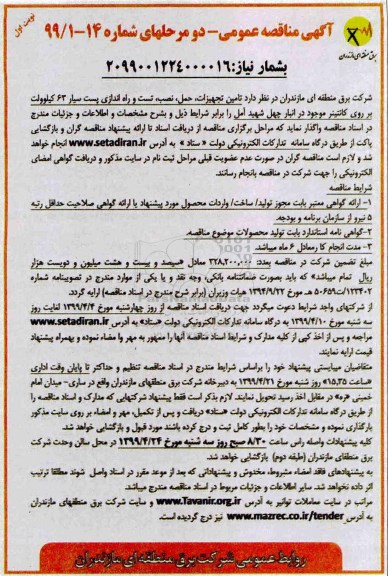 نوبت اول
آگهی مناقصه عمومی- دو مرحلهای شماره ۱۴-۹۹/۱
برق منطقه ای مازندران
بشمار نیاز:۲۰۹۹۰۰۱۲۲۴۰۰۰۰۱۶
شرکت برق منطقه ای مازندران در نظر دارد تامین تجهیزات، حمل، نصب، تست و راه اندازی پست سیار ۶۳ کیلوولت
بر روی کانتینر موجود در انبار چهل شهید آمل را برابر شرایط ذیل و بشرح مشخصات و اطلاعات و جزئیات مندرج
در اسناد مناقصه واگذار نماید که مراحل برگزاری مناقصه از دریافت اسناد تا ارائه پیشنهاد مناقصه گران و بازگشایی
پاکت از طریق درگاه سامانه تدارکات الکترونیکی دولت « ستاد » به آدرس www.setadiran.ir انجام خواهد
شد و لازم است مناقصه گران در صورت عدم عضویت قبلی مراحل ثبت نام در سایت مذکور و دریافت گواهی امضای
الکترونیکی را جهت شرکت در مناقصه بانجام رسانند.
شرایط مناقصه
۱- ارائه گواهی معتبر بابت مجوز تولید/ ساخت/ واردات محصول مورد پیشنهاد یا ارائه گواهی صلاحیت حداقل رتبه
۵ نیرو از سازمان برنامه و بودجه.
۲-گواهی نامه استاندارد بابت تولید محصولات موضوع مناقصه.
۳- مدت انجام کار معادل ۶ ماه میباشد.
مبلغ تضمین شرکت در مناقصه بعدد: ۳۲۸,۲۰۰,۰۰۰ معادل «سیصد و بیست و هشت میلیون و دویست هزار
ریال تمام میباشد» که باید بصورت ضمانتنامه بانکی، وجه نقد و یا یکی از موارد مندرج در تصویبنامه شماره
۱۲۳۴۰۲/ت۵۰۶۵۹ هـ مورخ ۱۳۹۴/۹/۲۲ هیات وزیران (برابر شرح مندرج در اسناد مناقصه) ارایه گردد.
از شرکتهای واجد شرایط دعوت میگردد جهت دریافت اسناد مناقصه از روز چهارشنبه مورخ ۱۳۹۹/۴/۴ لغایت روز
سه شنبه مورخ ۱۳۹۹/۴/۱۰ به درگاه سامانه تدارکات الکترونیکی دولت «ستاد» به آدرس www.setadiran.ir
مراجعه و پس از اخذ کپی از کلیه مدارک و شرایط اسناد مناقصه آنها را ممهور به مهر وا مضاء نموده و بهمراه پیشنهاد
قیمت ارایه نمایند.
متقاضیان میبایستی پیشنهاد خود را براساس شرایط مندرج در اسناد مناقصه تنظیم و حداکثر تا پایان وقت اداری
«ساعت ۱۵,۳۵» روز شنبه مورخ ۱۳۹۹/۴/۲۱ به دبیرخانه شرکت برق منطقهای مازندران واقع در ساری- میدان امام
خمینی «ره» در مقابل اخذ رسید تحویل نمایند. لازم بذکر است فقط پیشنهاد شرکتهایی که مدارک و اسناد مناقصه را
از طریق درگاه سامانه تدارکات الکترونیکی دولت «ستاد» دریافت و پس از تکمیل، مهر و امضاء بر روی سایت مذکور
بارگذاری نموده و مشخصات خود را بطور کامل ثبت و درج کرده باشند مورد قبول و بازگشایی خواهد شد.
کلیه پیشنهادات واصله راس ساعت ۸/۳۰ صبح روز سه شنبه مورخ ۱۳۹۹/۴/۲۴ در محل سالن وحدت شرکت
برق منطقهای مازندران (طبقه دوم) بازگشایی خواهد شد.
به پیشنهادهای فاقد امضاء، مشروط، مخدوش و پیشنهاداتی که بعد از موعد مقرر در اسناد واصل شوند مطلقا ترتیب
اثر داده نخواهد شد. سایر اطلاعات و جزئیات مربوط در اسناد مناقصه مندرج میباشد.
مراتب در سایت معاملات توانیر به آدرس www.Tavanir.org.ir و سایت شرکت برق منطقهای مازندران
به آدرس www.mazrec.co.ir/tender نیز درج گردیده است.
روابط عمومی شرکت برق منطقه ای مازندران